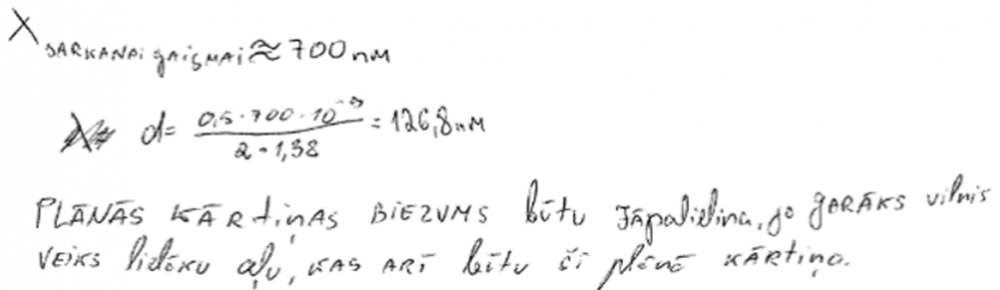 λ sarkanai gaismai ≈ 700 nm
d = \frac{0,5 · 700 · 10^{-9}}{2 · 1,38} = 126,8 nm
PLĀNĀS KĀRtiņAS BIEZUMS būtu Jāpalielina, jo GARĀKS vilnis
VEIKS lielāku aļu, KAS ARĪ būtu šī plānā KĀRTIŅA.